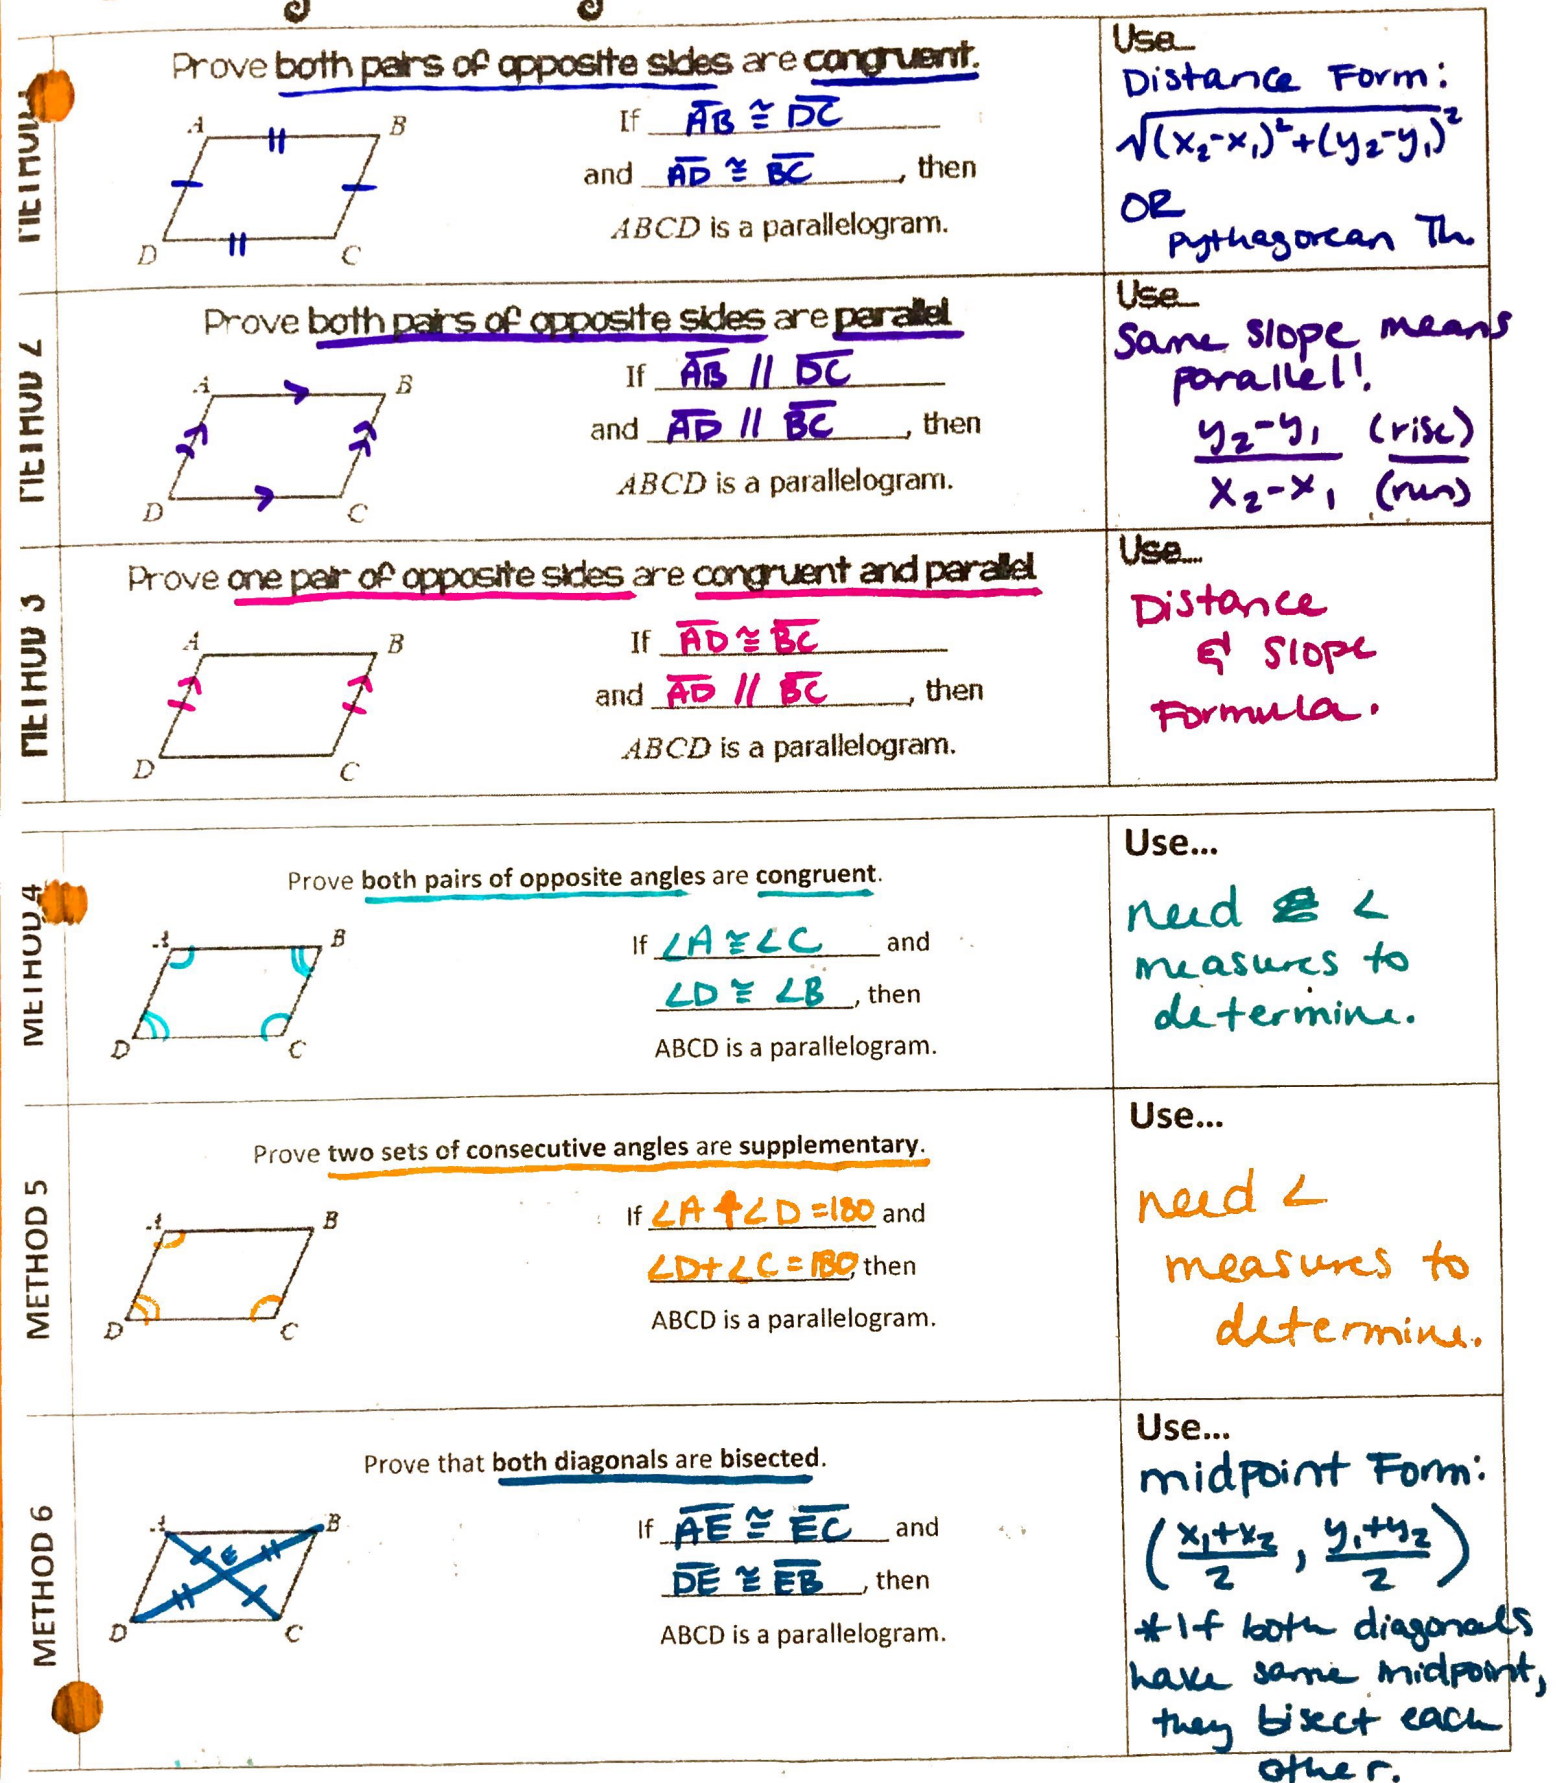 METHOD
Prove both pairs of opposite sides are congruent.
A
B
D
C
If AB ≅ DC
and AD ≅ BC, then
ABCD is a parallelogram.
Use
Distance Form:
√(x₂-x₁)²+(y₂-y₁)²
OR
Pythagorean Th.
METHOD 2
Prove both pairs of opposite sides are parallel
A
B
D
C
If AB // DC
and AD // BC, then
ABCD is a parallelogram.
Use
Same slope means
parallel!
y₂-y₁ (rise)
x₂-x₁ (run)
METHOD 3
Prove one pair of opposite sides are congruent and parallel
A
B
D
C
If AD ≅ BC
and AD // BC, then
ABCD is a parallelogram.
Use...
Distance
& Slope
Formula.
METHOD 4
Prove both pairs of opposite angles are congruent.
A
B
D
C
If ∠A ≅ ∠C and
∠D ≅ ∠B, then
ABCD is a parallelogram.
Use...
need ∠
measures to
determine.
METHOD 5
Prove two sets of consecutive angles are supplementary.
A
B
D
C
If ∠A + ∠D =180 and
∠D+∠C = 180, then
ABCD is a parallelogram.
Use...
need ∠
measures to
determine.
METHOD 6
Prove that both diagonals are bisected.
A
B
E
D
C
If AE ≅ EC and
DE ≅ EB, then
ABCD is a parallelogram.
Use...
midpoint Form:
(x₁+x₂/2, y₁+y₂/2)
*If both diagonals
have same midpoint,
they bisect each
other.